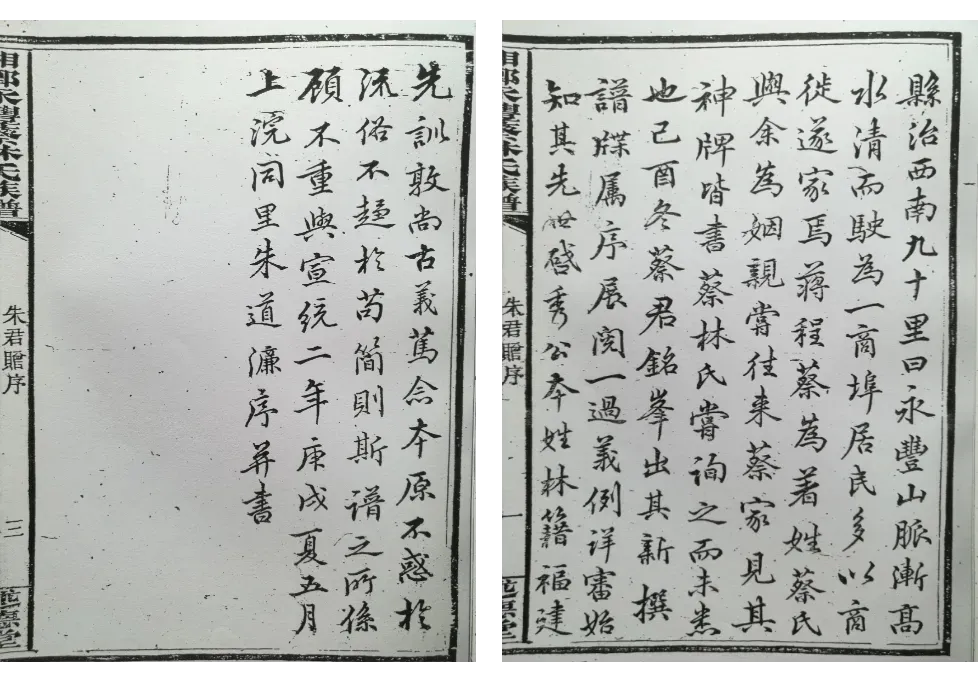 縣治西南九十里曰永豐山脈漸髙
水清而駛為一商埠居民多以商
徙遂家焉蔣程蔡為著姓蔡氏
與余為姻親嘗往来蔡家見其
神牌皆書蔡林氏嘗詢之而未悉
也己酉冬蔡君銘峯出其新撰
譜牒属序展阅一過義例详審始
知其先世啟秀公本姓林籍福建
永豐蔡林氏族譜
朱君贈序
一
堂
先訓敦尚古義篤念本原不惑於
流俗不趨於苟简則斯谱之所係
顧不重與宣統二年庚戌夏五月
上浣同里朱道濂序并書
永豐蔡林氏族譜
朱君贈序
三
堂